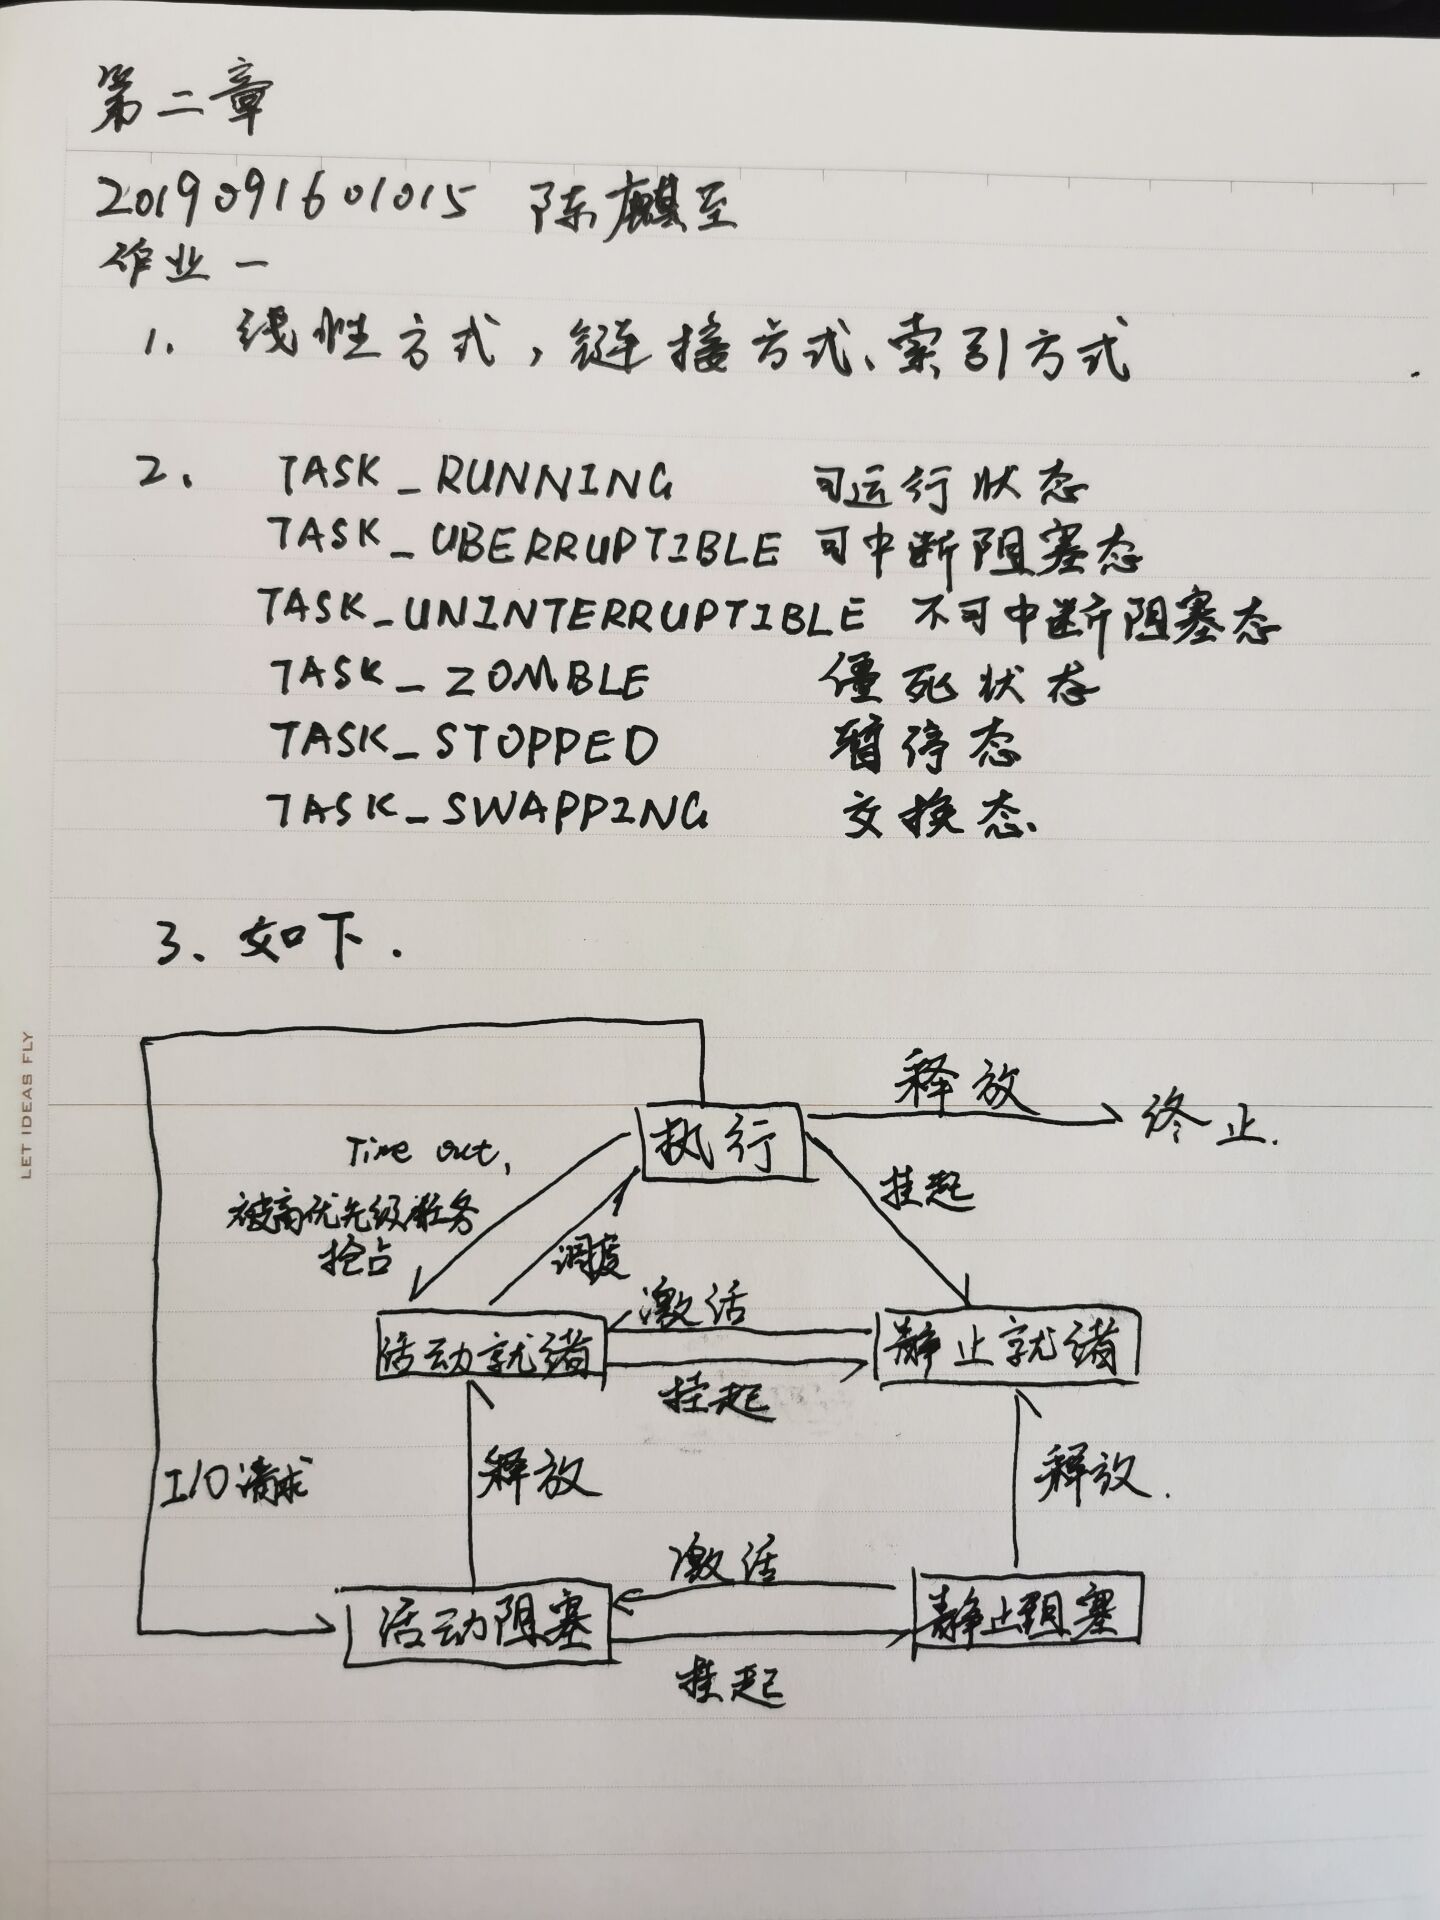 第二章
2019091601015 陈麒至
作业一
1. 线性方式，链接方式、索引方式
2. TASK_RUNNING 可运行状态
TASK_UBERRUPTIBLE 可中断阻塞态
TASK_UNINTERRUPTIBLE 不可中断阻塞态
TASK_ZOMBLE 僵死状态
TASK_STOPPED 暂停态
TASK_SWAPPING 交换态.
3、如下.
释放
执行
终止.
Time out,
被高优先级任务
抢占
挂起
调度
激活
活动就绪
静止就绪
挂起
I/O请求
释放
释放.
激活
活动阻塞
静止阻塞
挂起
LET IDEAS FLY